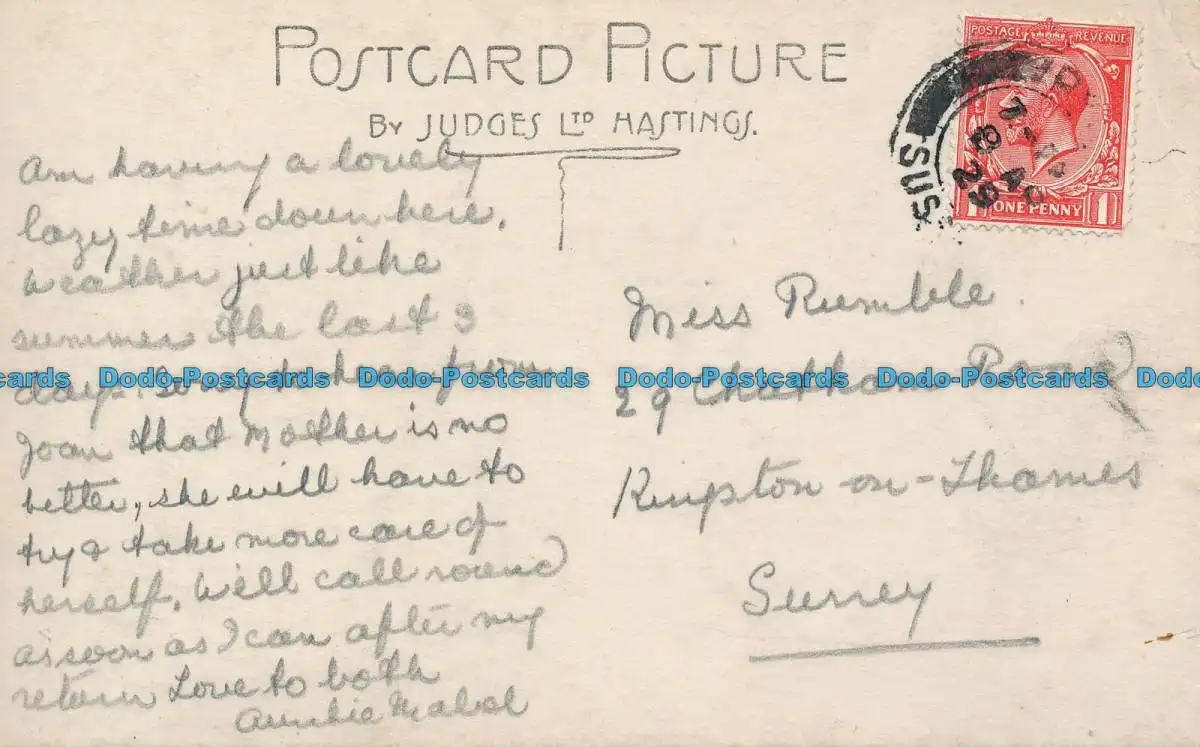 POSTCARD PICTURE
BY JUDGES LTD HASTINGS.
POSTAGE REVENUE
ONE PENNY
1 1
SUS
29
Am having a lovely
lazy time down here.
Weather just like
summer the last 3
days. Sorry to hear from
Joan that Mother is no
better, she will have to
try & take more care of
herself. Will call round
as soon as I can after my
return Love to both
Auntie Mabel
Miss Rumble.
29 Chatham Road
Kingston-on-Thames
Surrey
Dodo-Postcards Dodo-Postcards Dodo-Postcards Dodo-Postcards